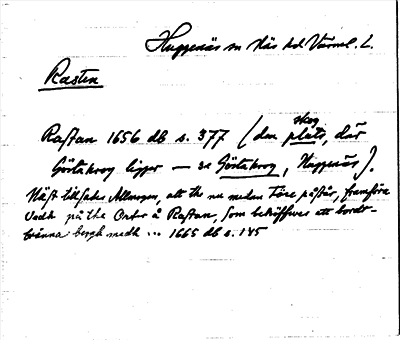 Huggenäs sn Näs hd Värml. L.
Rasten
Raftan 1656 db s. 377 (den skog plats, där
Götakrog ligger — se Götakrog, Huggenäs).
Näst tilsades Allmogen, att the nu medan Före påstår, framföra
Vedh på the Orter å Raftan, som behöffwes att bordt-
bränna bergh medh ... 1665 db s. 145